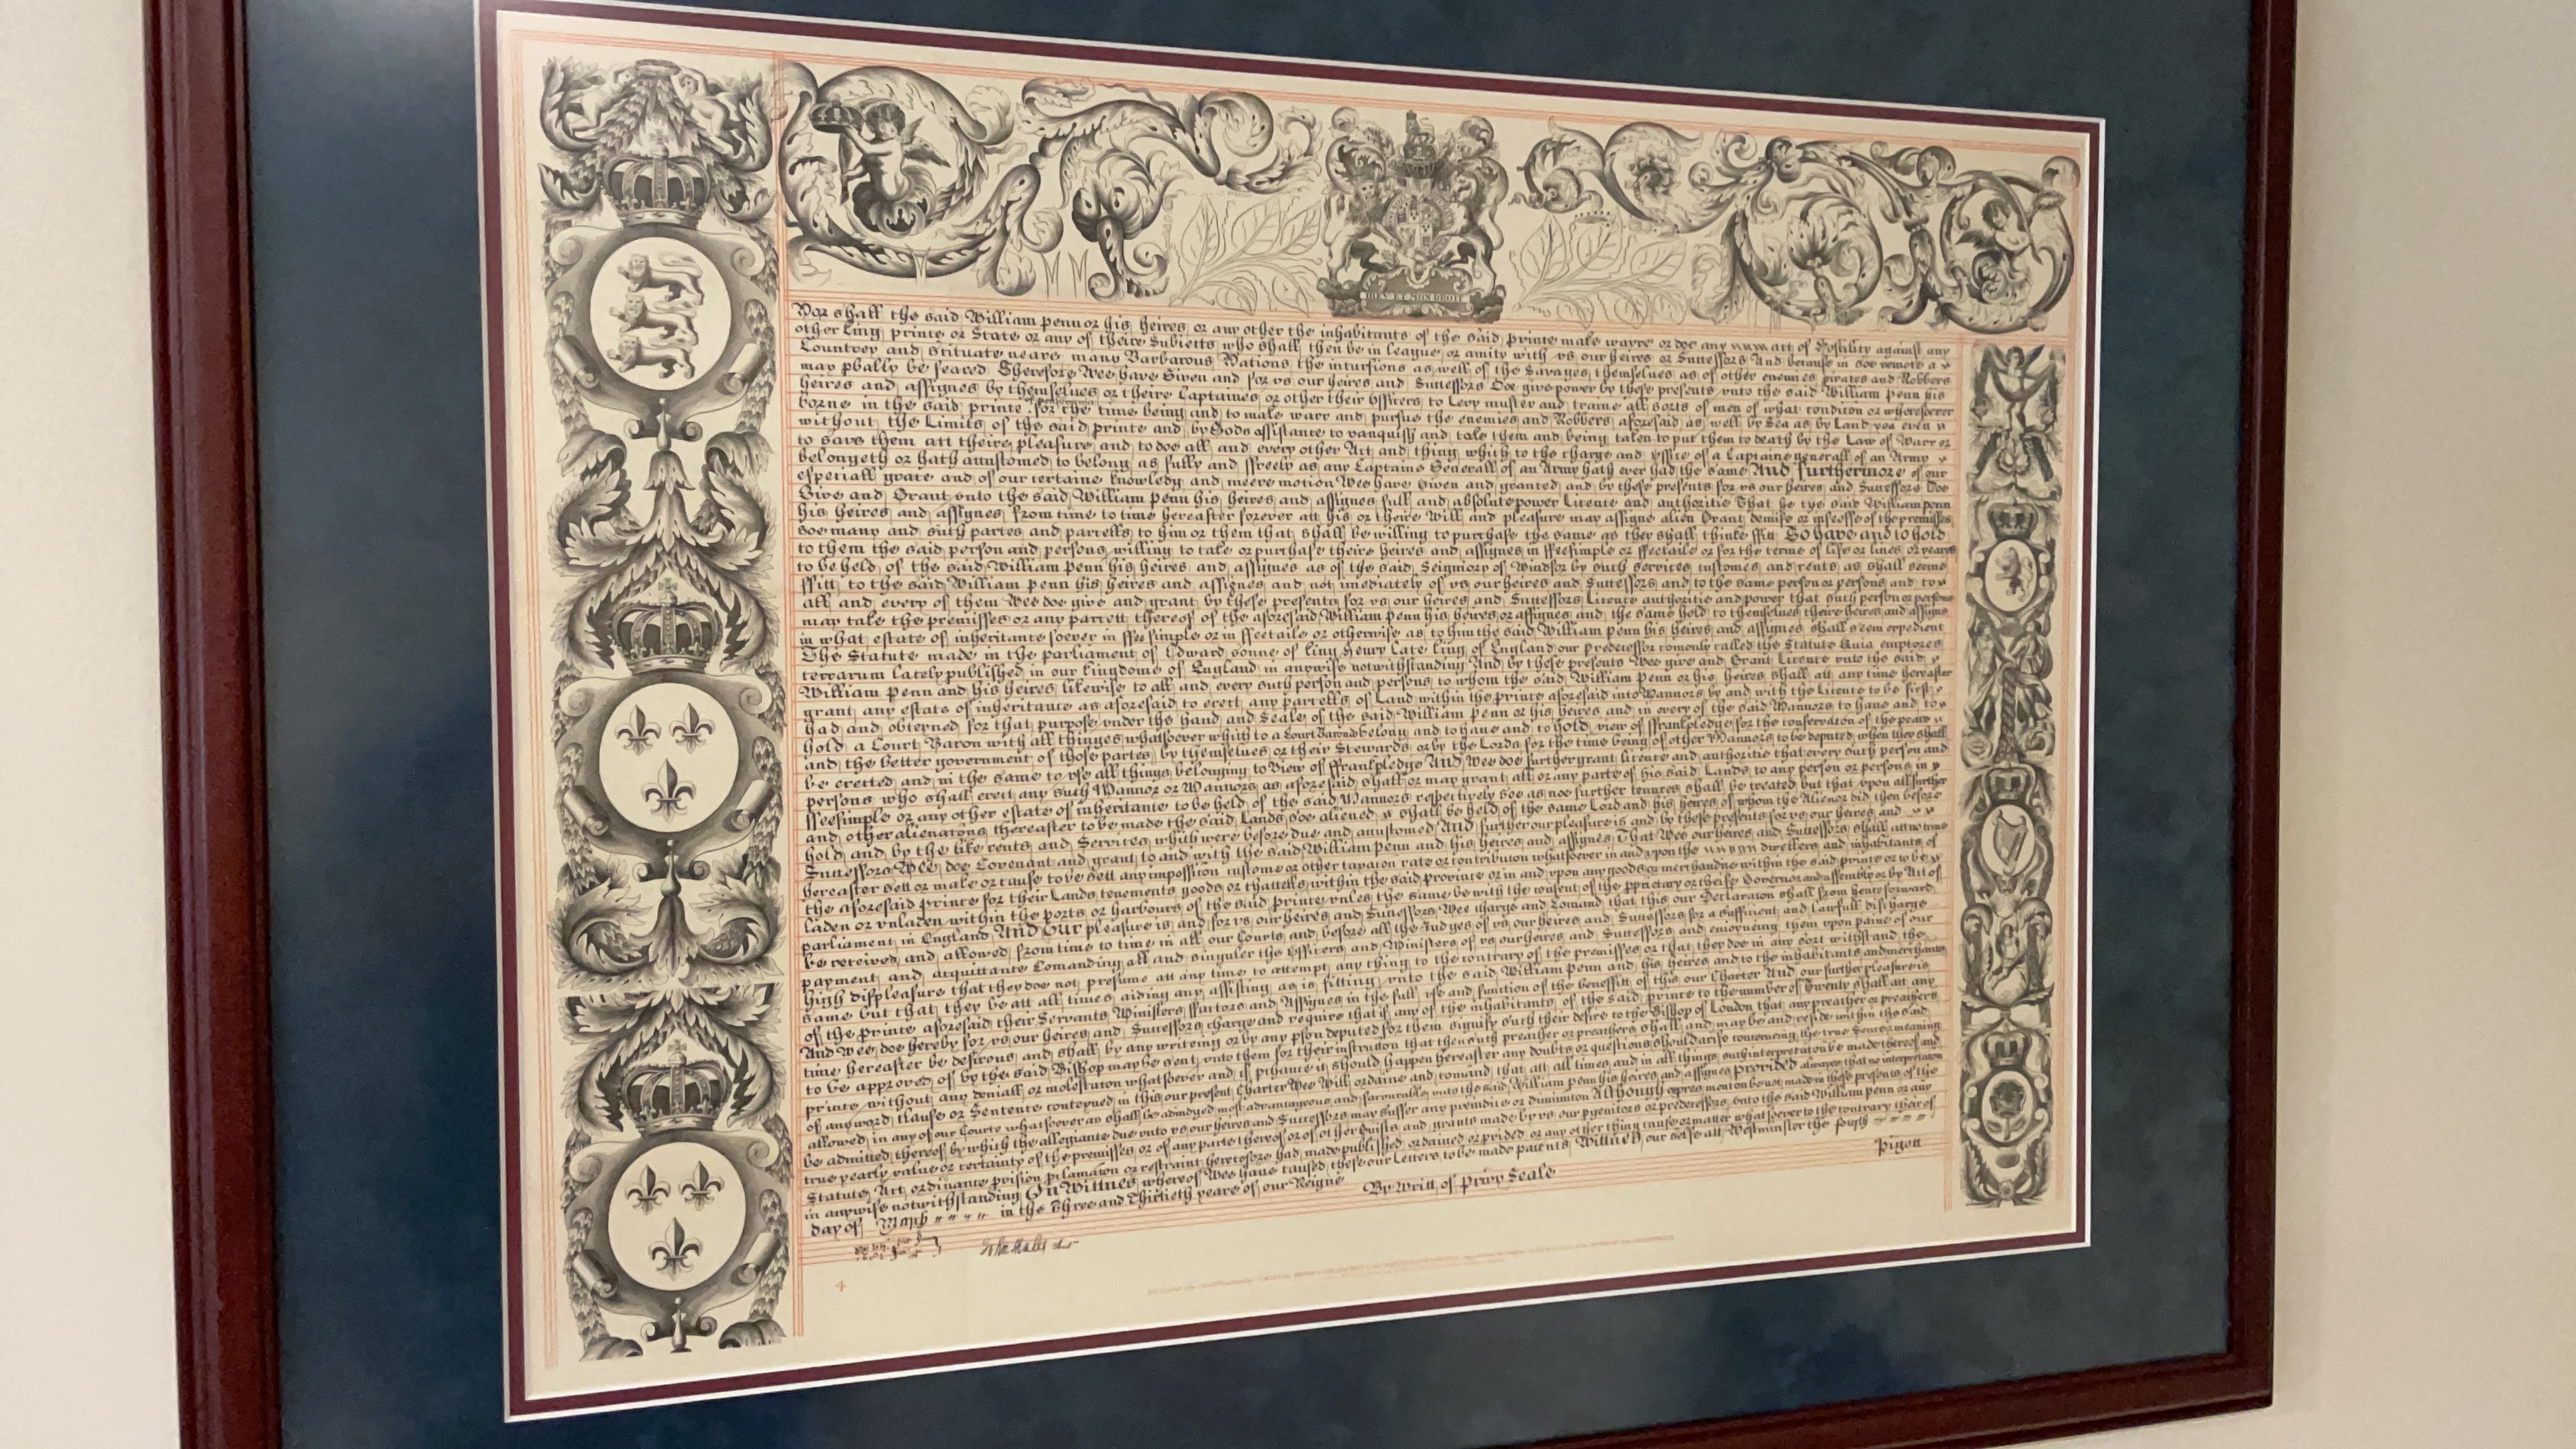 DIEV ET MON DROIT
Nor shall the said William Penn or his heires or any other the inhabitants of the said Prvince make warre or doe any act of Hostility against any
other king prince or State or any of theire Subiects who shall then be in league or amity with vs our heires or Successors And because in soe remote a
Countrey and scituate neare many Barbarous Nations the incursions as well of the Savages themselues as of other enemies pirates and Robbers
may pbally be feared Therefore Wee have Given and for vs our heires and Successors Doe give power by these presents vnto the said William Penn his
heires and assignes by themselues or theire Captaines or other their Officers to Levy muster and traine all sorts of men of what condicon or wheresoever
borne in the said prvince for the time being and to make warr and pursue the enemies and Robbers aforesaid as well by Sea as by Land yea even
without the Limits of the said prvince and by Gods assistance to vanquish and take them and being taken to put them to death by the Law of Warr or
to save them att theire pleasure and to doe all and every other Act and thing which to the charge and Office of a Captaine generall of an Army
belongeth or hath accustomed to belong as fully and ffreely as any Captaine Generall of an Army hath ever had the same And furthermore of our
especiall grace and of our certaine knowledg and meere motion Wee have Given and granted and by these presents for vs our heires and Successors Doe
Give and Grant vnto the said William Penn his heires and assignes full and absolute power Licence and authoritie That he the said William Penn
his heires and assignes from time to time hereafter forever att his or theire Will and pleasure may assigne alien Grant demise or infeoffe of the premisses
soe many and such partes and parcells to him or them that shall be willing to purchase the same as they shall thinke ffitt To have and to hold
to them the said person and persons willing to take or purchase theire heires and assignes in ffeesimple or ffeetaile or for the terme of life or lives or yeares
to be held of the said William Penn his heires and assignes as of the said Seigniory of Windsor by such services customes and rents as shall seeme
ffitt to the said William Penn his heires and assignes and not imediately of vs our heires and Successors and to the same person or persons and to
all and every of them Wee doe give and grant by these presents for vs our heires and Successors Licence authoritie and power that such person or persons
may take the premisses or any parcell thereof of the aforesaid William Penn his heires or assignes and the same hold to themselues theire heires and assignes
in what estate of inheritance soever in ffee simple or in ffeetaile or otherwise as to him the said William Penn his heires and assignes shall seem expedient
The Statute made in the parliament of Edward sonne of king Henry late king of England our predecessor comonly called the Statute Quia emptores
terrarum lately published in our kingdome of England in anywise notwithstanding And by these presents Wee give and Grant Licence vnto the said
William Penn and his heires likewise to all and every such person and persons to whom the said William Penn or his heires shall att any time hereafter
grant any estate of inheritance as aforesaid to erect any parcells of Land within the prvince aforesaid into Mannors by and with the Licence to be first
had and obteyned for that purpose vnder the hand and Seale of the said William Penn or his heires and in every of the said Mannors to haue and to
hold a Court Baron with all thinges whatsoever which to a Court Baron do belong and to haue and to hold view of ffrankpledge for the conservacon of the peace
and the better government of those partes by themselues or their Stewards or by the Lords for the time being of other Mannors to be deputed when they shall
be erected and in the same to vse all things belonging to View of ffrankpledge And Wee doe further grant licence and authoritie that every such person and
persons who shall erect any such Mannor or Mannors as aforesaid shall or may grant all or any parte of his said Lands to any person or persons in
ffeesimple or any other estate of inheritance to be held of the said Mannors respectively soe as noe further tenures shall be created but that vpon all further
and other alienatons thereafter to be made the said Lands soe aliened shall be held of the same Lord and his heires of whom the Alienor did then before
hold and by the like rents and Services which were before due and accustomed And further our pleasure is and by these presents for vs our heires and
Successors Wee doe Covenant and grant to and with the said William Penn and his heires and assignes That Wee our heires and Successors shall att no time
hereafter sett or make or cause to be sett any imposicon custome or other taxacon rate or contribucon whatsoever in and vpon the dwellers and inhabitants of
the aforesaid prvince for their Lands tenements goods or chattells within the said province or in and vpon any goods or merchandize within the said prvince or to be
laden or vnladen within the ports or harbours of the said prvince vnles the same be with the consent of the pprietary or cheife Governor and assembly or by Act of
parliament in England And Our pleasure is and for vs our heires and Successors Wee charge and Comand that this our Declaracon shall from henceforward
be received and allowed from time to time in all our Courts and before all the Judges of vs our heires and Successors for a sufficient and lawfull discharge
payment and acquittance Comanding all and singuler the Officers and Ministers of vs our heires and Successors and enioyneing them vpon paine of our
high displeasure that they doe not presume att any time to attempt any thing to the contrary of the premisses or that they doe in any sort withstand the
same but that they be att all times aiding and assisting as is fitting vnto the said William Penn and his heires and to the inhabitants and merchants
of the prvince aforesaid their Servants Ministers ffactors and Assignes in the full vse and fruition of the benefitt of this our Charter And our further pleasure is
And Wee doe hereby for vs our heires and Successors charge and require that if any of the inhabitants of the said prvince to the number of Twenty shall att any
time hereafter be desirous and shall by any writeing or by any pson deputed for them signify such their desire to the Bishop of London that any preacher or preachers
to be approved of by the said Bishop may be sent vnto them for their instruccon that then such preacher or preachers shall and may be and reside within the said
prvince without any deniall or molestacon whatsoever and if pchance it should happen hereafter any doubts or questions should arise concerning the true Sence and meaning
of any word Clause or Sentence conteyned in this our present Charter Wee Will ordaine and comand that att all times and in all things such interpretacon be made thereof and
allowed in any of our Courts whatsoever as shall be adiudged most advantageous and favourable vnto the said William Penn his heires and assignes Provided alwayes that no interpretacon
be admitted thereof by which the allegiance due vnto vs our heires and Successors may suffer any preiudice or diminucon Although expres mencon be not made in these presents of the
true yearly value or certainty of the premisses or of any parte thereof or of other Guifts and grants made by vs our pgenitors or predecessors vnto the said William Penn or any
Statute Act ordinance prvision pclamacon or restraint heretofore had made published ordained or prvided or any other thing cause or matter whatsoever to the contrary thereof
in anywise notwithstanding In Wittnes whereof Wee have caused these our Letters to be made patents Wittnes our selfe att Westminster the fourth
day of March in the Three and Thirtieth yeare of our Reigne
By Writt of Privy Seale
Pigott
John Shaler
4